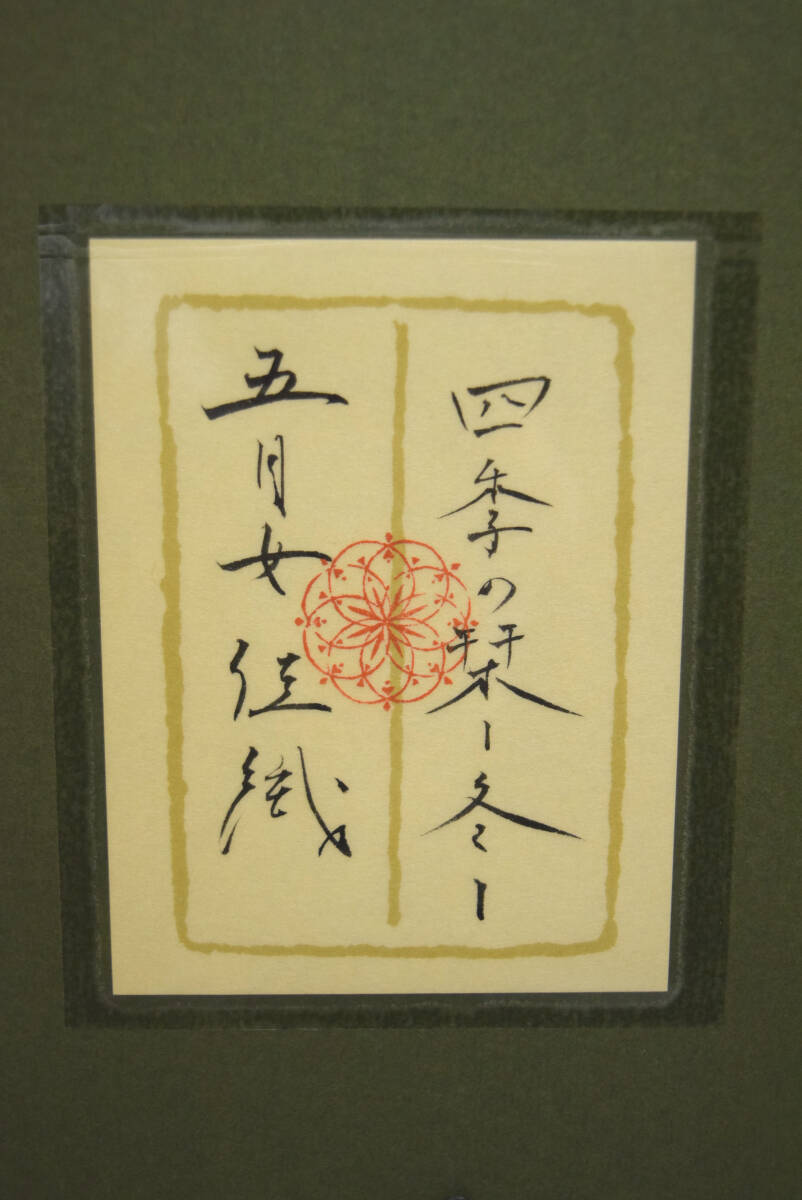 四季の栞ー冬ー
五月女佳織